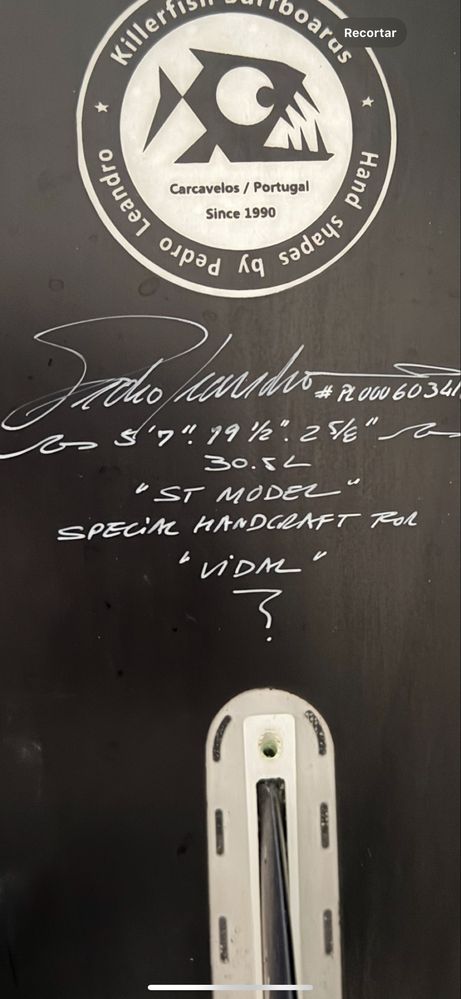 Recortar
Killerfish Surfboards
Carcavelos / Portugal
Since 1990
Hand shapes by Pedro Leandro
Pedro Leandro
5'7". 19 1/2". 2 5/8"
30.5L
"ST MODEL"
SPECIAL HANDCRAFT FOR
"VIDAL"